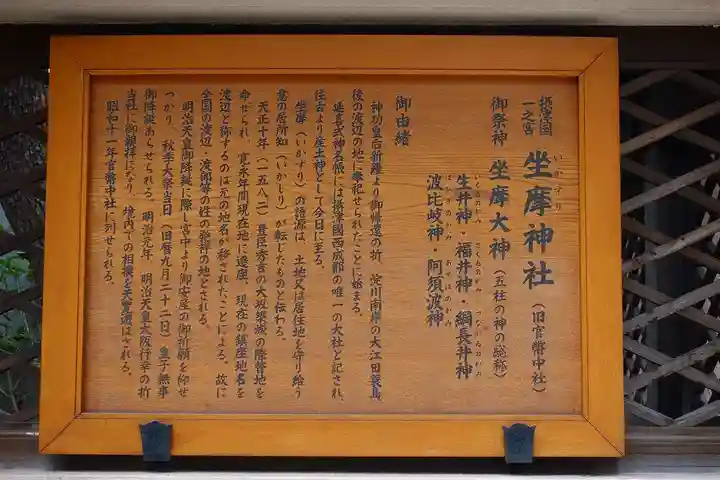 摂津國
一之宮
坐摩神社（旧官幣中社）
いかすり
御祭神 坐摩大神（五柱の神の総称）
生井神・福井神・綱長井神
いくゐのかみ さくゐのかみ つながゐのかみ
波比岐神・阿須波神
はひきのかみ あすはのかみ
御由緒
神功皇后新羅より御帰還の折、淀川南岸の大江田蓑島
後の渡辺の地に奉祀せられたことに始まる。
延喜式神名帳には摂津國西成郡の唯一の大社と記され、
往古より産土神として今日に至る。
坐摩（いかすり）の語源は、土地又は居住地を守り給う
意の居所知（いかしり）が転じたものと伝わる。
天正十年（一五八二）豊臣秀吉の大坂築城の際替地を
命ぜられ、寛永年間現在地に遷座、現在の鎮座地名を
渡辺と称するのは元の地名が移されたことによる。故に
全国の渡辺、渡部等の姓の発祥の地とされる。
明治天皇御降誕に際し宮中より御安産の御祈願を仰せ
つかり、秋季大祭当日（旧暦九月二十二日）皇子無事
御降誕あらせられる。明治元年、明治天皇大阪行幸の折
当社に御親拝になり、境内での相撲を天覧遊ばされる。
昭和十一年官幣中社に列せられる。